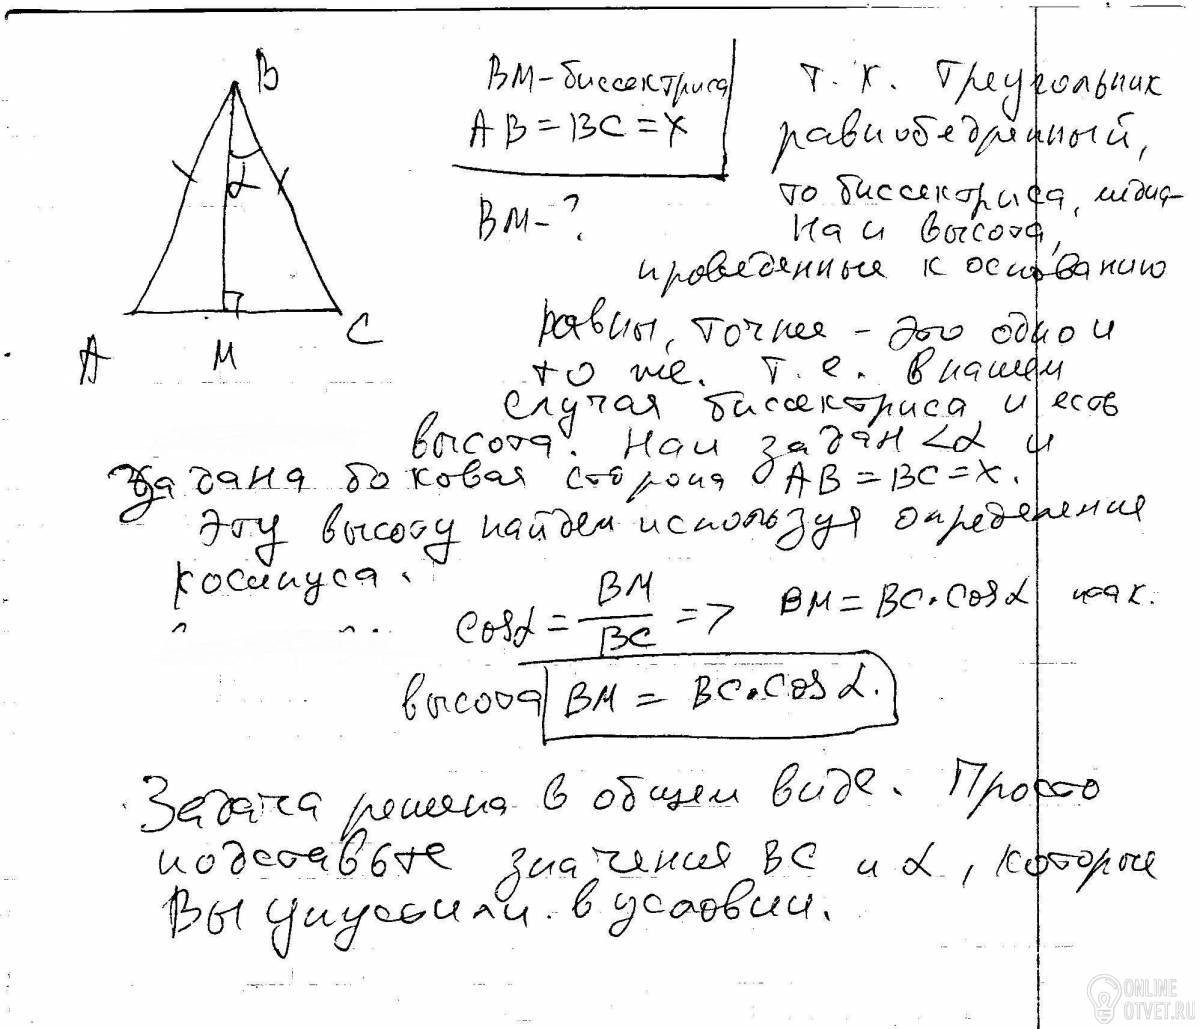 B
α
A
M
C
BM – биссектриса
AB = BC = x
BM – ?
Т. к. треугольник
равнобедренный,
то биссектриса, медиа-
на и высота,
проведенные к основанию
равны, точнее – это одно и
то же. Т. е. в нашем
случая биссектриса и есть
высота. Нам задан <α и
задана боковая сторона AB = BC = x.
Эту высоту найдем используя определение
косинуса.
cosα = BM/BC => BM = BC·cosα
высота BM = BC·cosα.
Задача решена в общем виде. Просто
подставьте значения BC и α, которые
Вы упустили в условии.
ONLINE
OTVET.RU